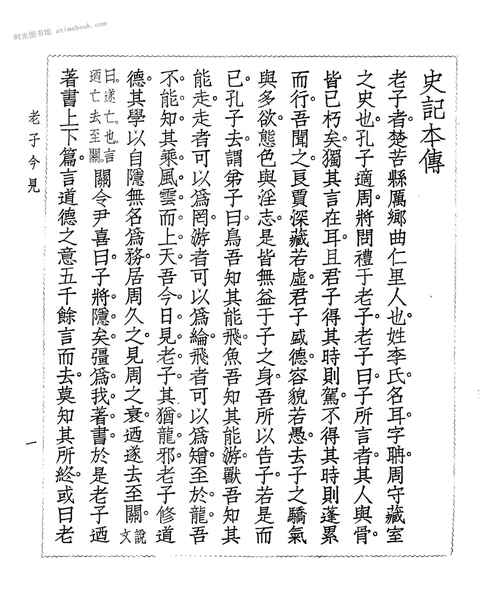 时光图书馆 atimebook.com
史記本傳
老子者。楚苦縣厲鄉曲仁里人也。姓李氏。名耳。字聃。周守藏室
之史也。孔子適周。將問禮于老子。老子曰。子所言者。其人與骨。
皆已朽矣。獨其言在耳。且君子得其時則駕。不得其時則蓬累
而行。吾聞之。良賈深藏若虛。君子盛德。容貌若愚。去子之驕氣
與多欲。態色與淫志。是皆無益于子之身。吾所以告子。若是而
已。孔子去。謂弟子曰。鳥吾知其能飛。魚吾知其能游。獸吾知其
能走。走者可以爲罔。游者可以爲綸。飛者可以爲矰。至於龍。吾
不能知其乘風雲而上天。吾今日見老子。其猶龍邪。老子修道
德。其學以自隱無名爲務。居周久之。見周之衰。迺遂去至關。說文
曰。遂。亡也。言迺亡去至關。關令尹喜曰。子將隱矣。彊爲我著書。於是老子迺
著書上下篇。言道德之意五千餘言而去。莫知其所終。或曰老
老子今見
一